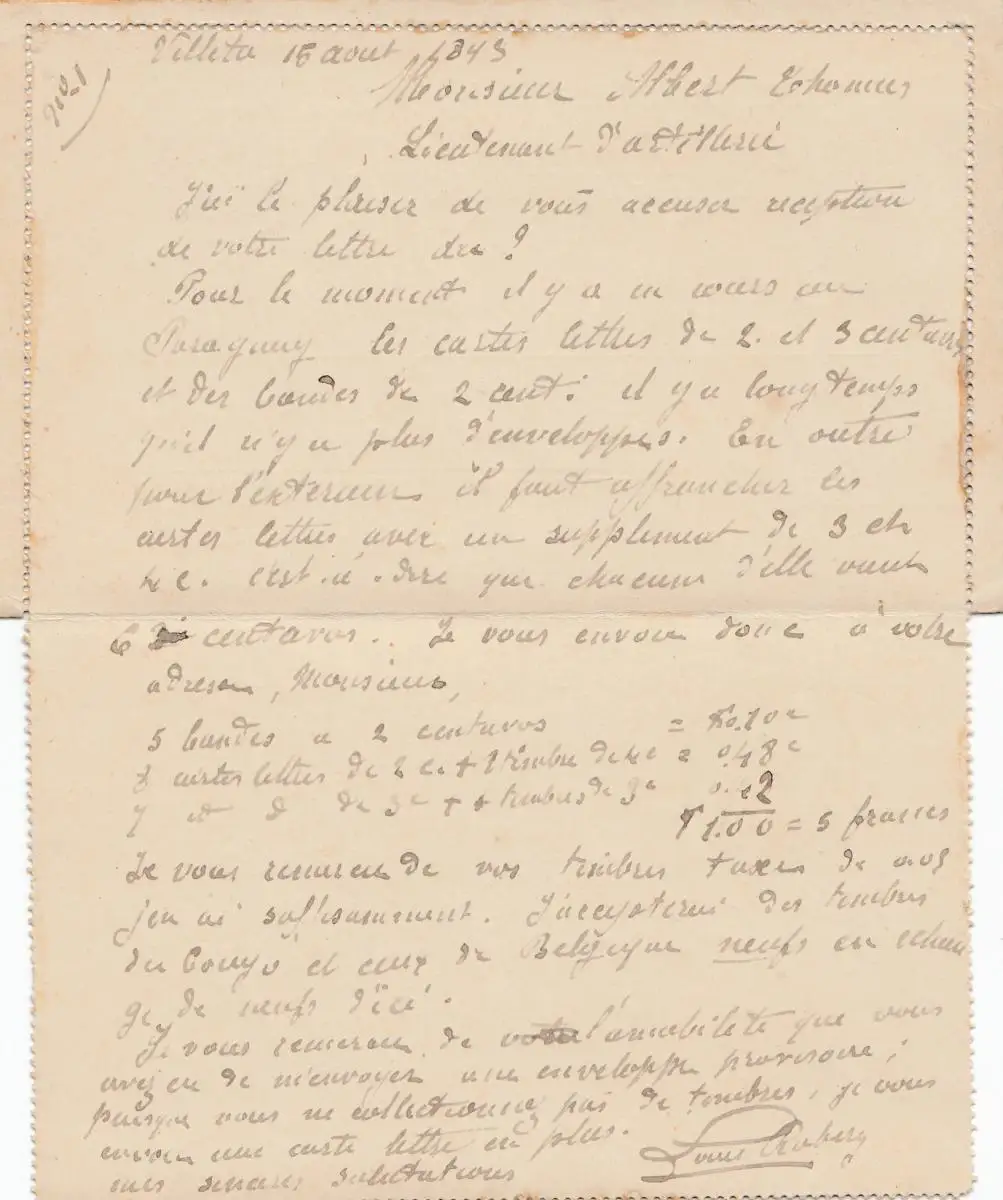 Villeta 15 aout 1893
No 1
Monsieur Albert
Lieutenant d'artillerie
J'ai le plaisir de vous accuser reception
de votre lettre du ?
Pour le moment il y a en cours au
Paraguay les cartes lettres de 2. et 3 centavos
et des bandes de 2 cent: il y a longtemps
qu'il n'y a plus d'enveloppes. En outre
pour l'exterieur il faut affrancher les
cartes lettres avec un supplement de 3 et
4 c. c'est.a.dire que chacune d'elle vaut
6 centavos.. Je vous envoie donc à votre
adresse, Monsieur,
5 bandes a 2 centavos = 0.10c
cartes lettres de 2 c. + 1 timbre de 4c = 0.48c
7 id d de 3c + 1 timbres de 3c 0.42
1.00 = 5 francs
Je vous remercie de vos timbres taxes de 0.05
j'en ai suffisamment. J'accepterai des timbres
du Congo et ceux de Belgique neufs en echan
ge de neufs d'ici.
Je vous remercie de l'amabilité que vous
avez eu de m'envoyer une enveloppe provisoire;
puisque vous ne collectionnez pas de timbres, je vous
envoie une carte lettre en plus.
mes sinceres salutations
Louis